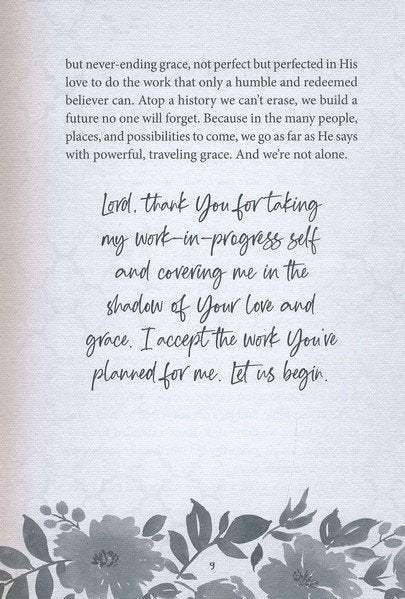 but never-ending grace, not perfect but perfected in His
love to do the work that only a humble and redeemed
believer can. Atop a history we can't erase, we build a
future no one will forget. Because in the many people,
places, and possibilities to come, we go as far as He says
with powerful, traveling grace. And we're not alone.
Lord, thank You for taking
my work-in-progress self
and covering me in the
shadow of Your love and
grace. I accept the work You've
planned for me. Let us begin.
9